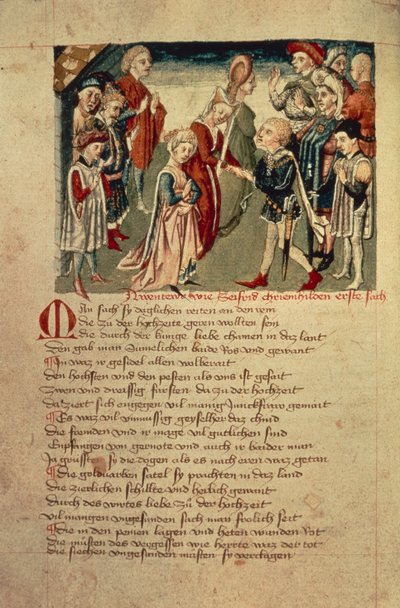 Awentewr wie Seifrid chriemhilden erste sach
Man sach sy däglichen reiten an den rein
die zü der hochzeite geren wollten sein
die durch der künige liebe chamen in daz lant
den gab man sümelichen baide Ros vnd gewant
In waz ir gesidel allen wolberait
den höchsten vnd den pesten als vns ist gesait
zwen vnd dreissig fürsten da zü der hochzeit
da ziert sich engegen vil manig junckfraw gemait
Es waz vil vnmüssig geyselher daz chind
die fremden vnd ir mage vil gütlichen sind
Enpfangen von gernote vnd auch ir baider man
Ja grüssten sy die degen als es nach eren waz getan
die goldvarben satel sy prachten in daz land
die zierlichen schillte vnd herlich gewant
durch des wirtes liebe zü der hochzeit
vil mangen vngesunden sach man frölich seit
die in den peten lagen vnd heten wunden not
die müsten des vergessen wie herrte waz der tot
die siechen vngesunden müsten sy verclagen